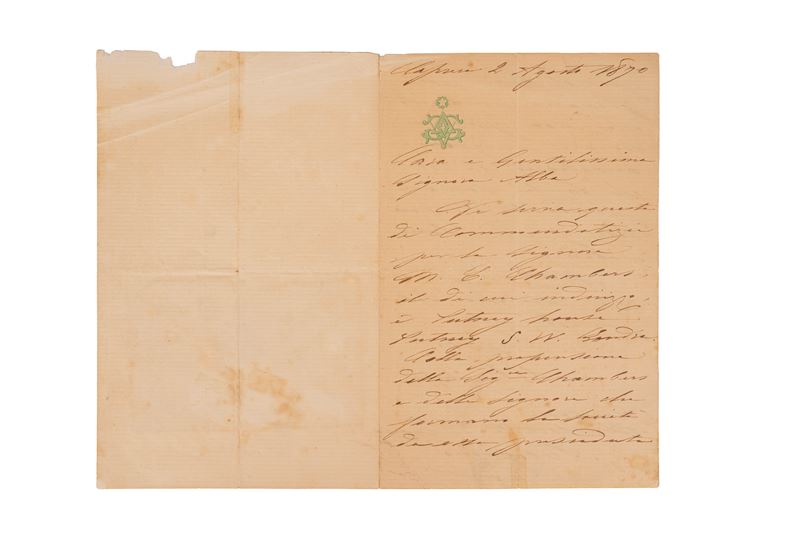 Caprera 2 Agosto 1870
Cara e Gentilissima
Signora Alba
Vi serva questa
di Commendatizia
per la Signora
M. C. Chambers,
il di cui indirizzo,
è Putney house
Putney S. W. Londra.
Colla propensione
della Sig.ra Chambers
e delle Signore che
formano la società
da essa presieduta